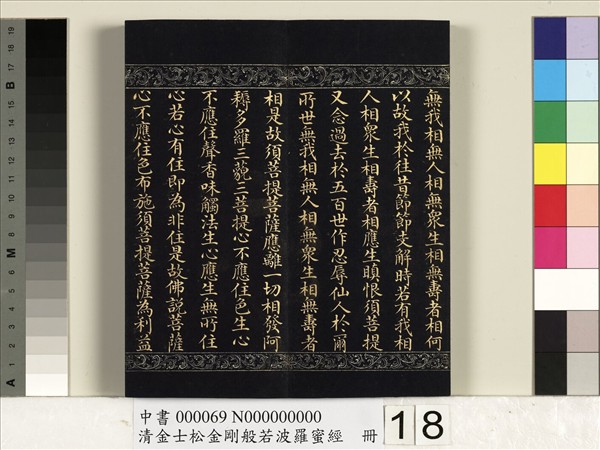 無我相無人相無衆生相無壽者相何
以故我於往昔節節支解時若有我相
人相衆生相壽者相應生瞋恨須菩提
又念過去於五百世作忍辱仙人於爾
所世無我相無人相無衆生相無壽者
相是故須菩提菩薩應離一切相發阿
耨多羅三藐三菩提心不應住色生心
不應住聲香味觸法生心應生無所住
心若心有住即為非住是故佛說菩薩
心不應住色布施須菩提菩薩為利益
A 1 2 3 4 5 6 M 8 9 10 11 12 13 14 15 B 17 18 19
中書 000069 N000000000
清金士松金剛般若波羅蜜經 冊 18